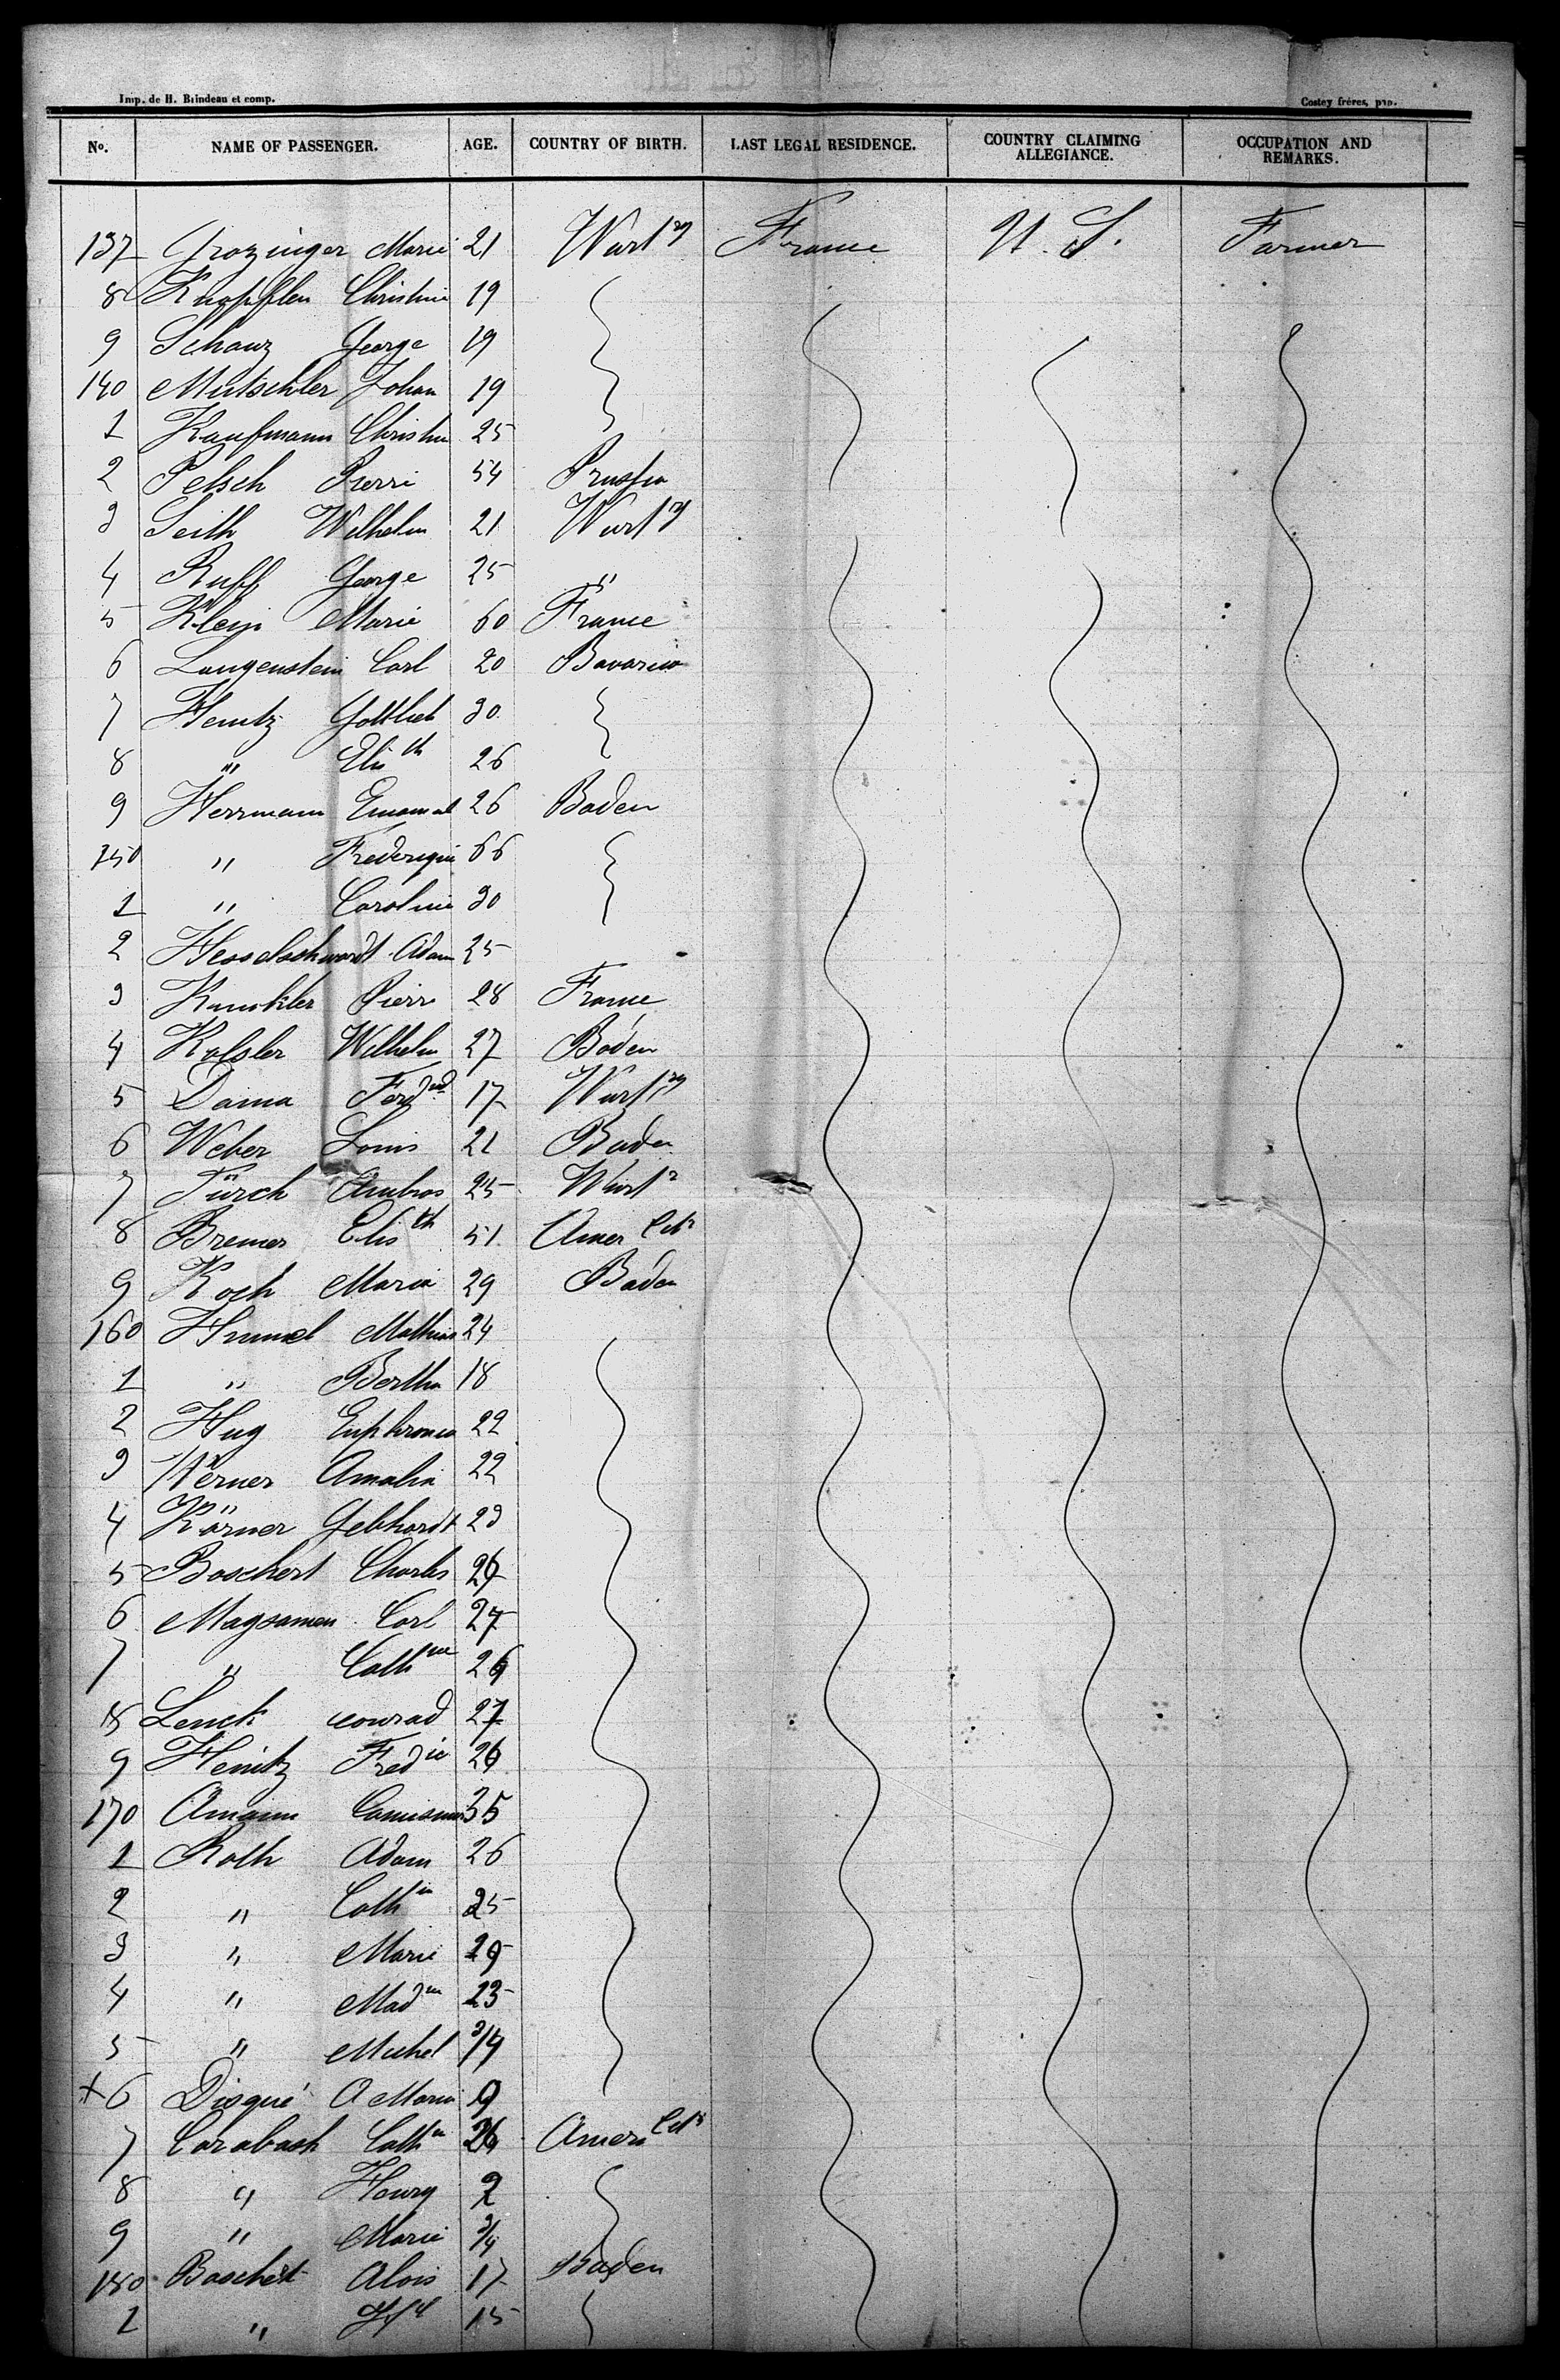 Imp. de H. Brindeau et comp. Costey frères, pro.
No. NAME OF PASSENGER. AGE. COUNTRY OF BIRTH. LAST LEGAL RESIDENCE. COUNTRY CLAIMING ALLEGIANCE. OCCUPATION AND REMARKS.
137 Grozinger Marie 21 Wurtg France U. S. Farmer
8 Knopflen Christine 19
9 Schanz George 19
140 Mutschler Johan 19
1 Kaufmann Christin 25
2 Petsch Pierri 54 Prussia
3 Seith Wilhelm 21 Wurtg
4 Ruff George 25 "
5 Klein Marie 60 France
6 Langenstein Carl 20 Bavaria
7 Hentz Gottlieb 30
8 " Elisth 26
9 Herrmann Emanuel 26 Baden
150 " Frederique 66
1 " Caroline 30
2 Hesselschwardt Adam 25
3 Kunkler Pierr 28 France
4 Kolsler Wilhelm 27 Baden
5 Daima Ferdnd 17 Wurtg
6 Weber Louis 21 Baden
7 Türch Ambros 25 Wurtg
8 Bremer Elisth 51 Amer Cts
9 Koch Maria 29 Baden
160 Hummel Mathias 24
1 " Bertha 18
2 Hug Euphrosia 22
3 Werner Amalia 22
4 Körner Gebhardt 23
5 Boschert Charles
6 Magsamen Carl 27
7 " Cathne 26
8 Lenck conrad 27
9 Heintz Fredic 26
170 Amann 35
1 Roth Adam 26
2 " Cathin 25
3 " Marie
4 " Madn 23
5 " Michel 3/4
+6 Disqué A Maria 9
7 Carabach Cathn Amer Cts
8 " Henry 2
9 " Marie 3/4
180 Boschert Alois 17 Baden
1 " 15